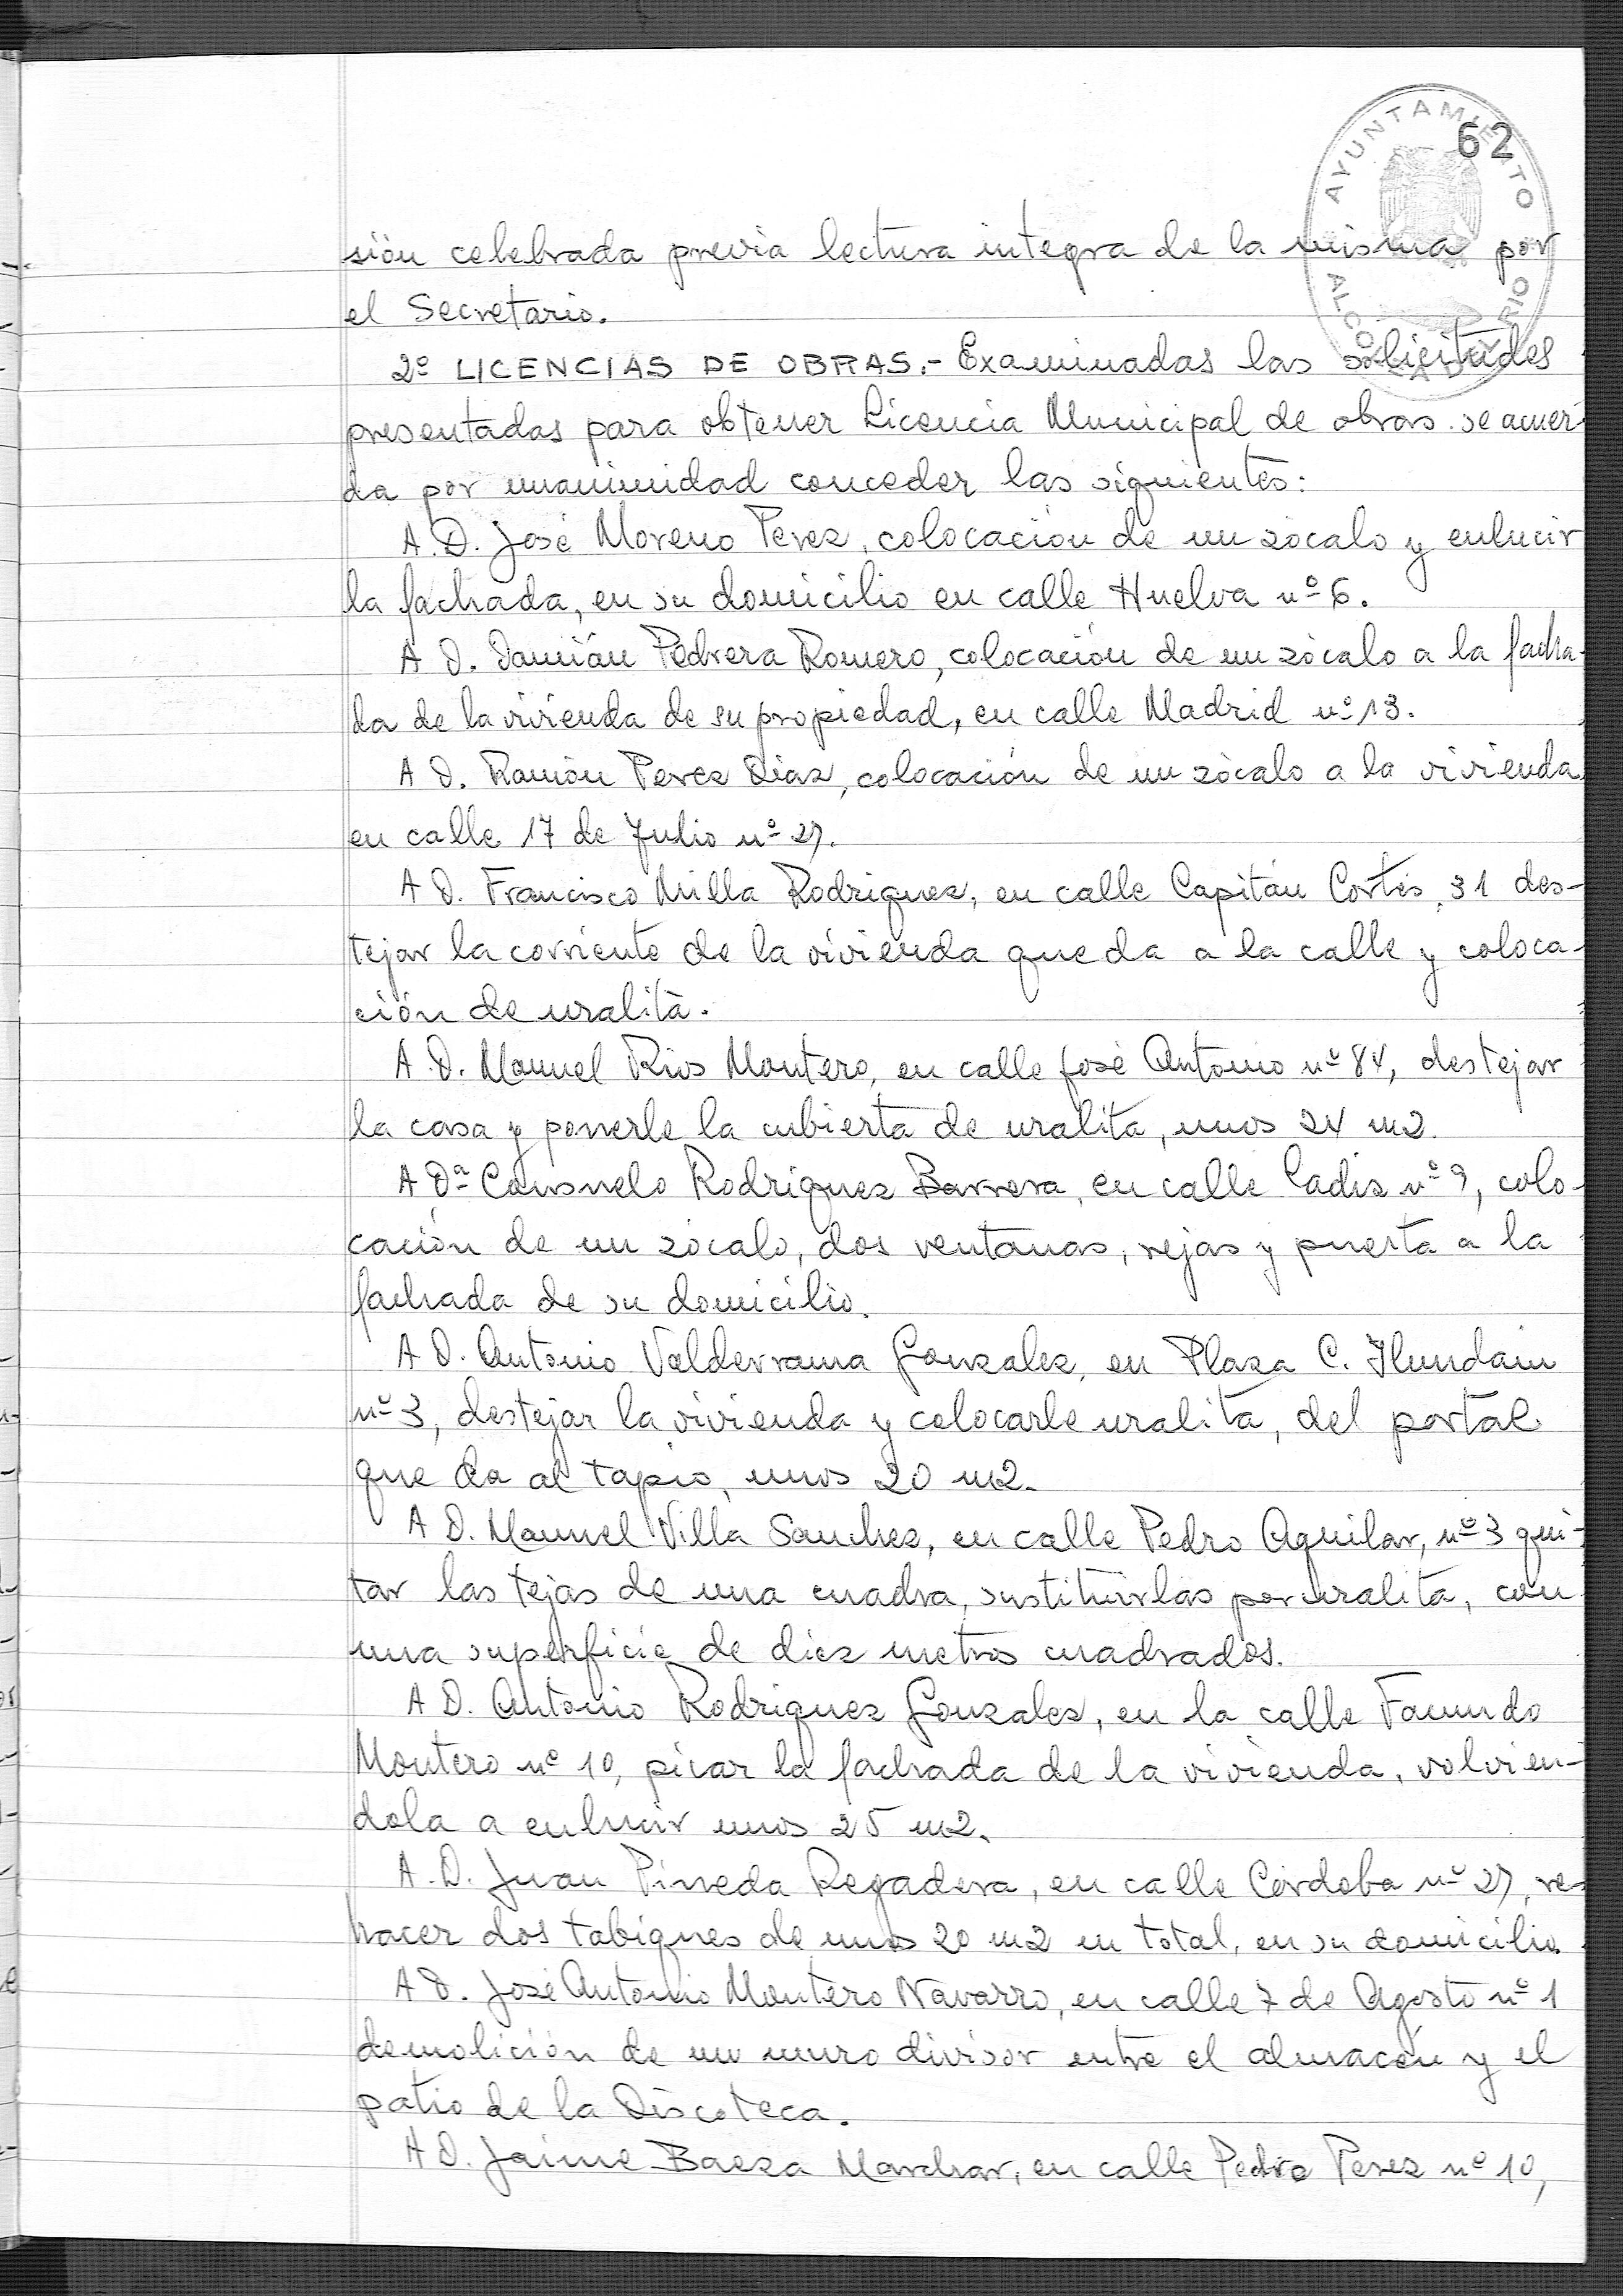 62
AYUNTAMIENTO
ALCOLEA DEL RIO
sión celebrada previa lectura integra de la misma por
el Secretario.
2º LICENCIAS DE OBRAS.- Examinadas las solicitudes
presentadas para obtener Licencia Municipal de obras se acuer-
da por unanimidad conceder las siguientes:
A. D. José Moreno Perez, colocación de un zócalo y enlucir
la fachada, en su domicilio en calle Huelva nº 6.
A D. Damián Pedrera Romero, colocación de un zócalo a la facha-
da de la vivienda de su propiedad, en calle Madrid nº 13.
A D. Ramón Perez Diaz, colocación de un zócalo a la vivienda
en calle 17 de Julio nº 27.
A D. Francisco Milla Rodriguez, en calle Capitán Cortés, 31 des-
tejar la corriente de la vivienda que da a la calle y coloca-
ción de uralita.
A. D. Manuel Rios Montero, en calle José Antonio nº 84, destejar
la casa y ponerle la cubierta de uralita, unos 24 m2.
A Dª Consuelo Rodriguez Barrera, en calle Cadiz nº 9, colo-
cación de un zócalo, dos ventanas, rejas y puerta a la
fachada de su domicilio.
A D. Antonio Valderrama Gonzalez, en Plaza C. Ilundain
nº 3, destejar la vivienda y colocarle uralita, del portal
que da al tapio, unos 20 m2.
A D. Manuel Villa Sanchez, en calle Pedro Aguilar, nº 3 qui-
tar las tejas de una cuadra, sustituirlas por uralita, con
una superficie de diez metros cuadrados.
A D. Antonio Rodriguez Gonzalez, en la calle Facundo
Montero nº 10, picar la fachada de la vivienda, volvien-
dola a enlucir unos 25 m2.
A. D. Juan Pineda Regadera, en calle Córdoba nº 27, re-
hacer dos tabiques de unos 20 m2 en total, en su domicilio.
A D. José Antonio Montero Navarro, en calle 7 de Agosto nº 1
demolición de un muro divisor entre el almacén y el
patio de la Discoteca.
A D. Jaime Baeza Marchar, en calle Pedro Perez nº 10,